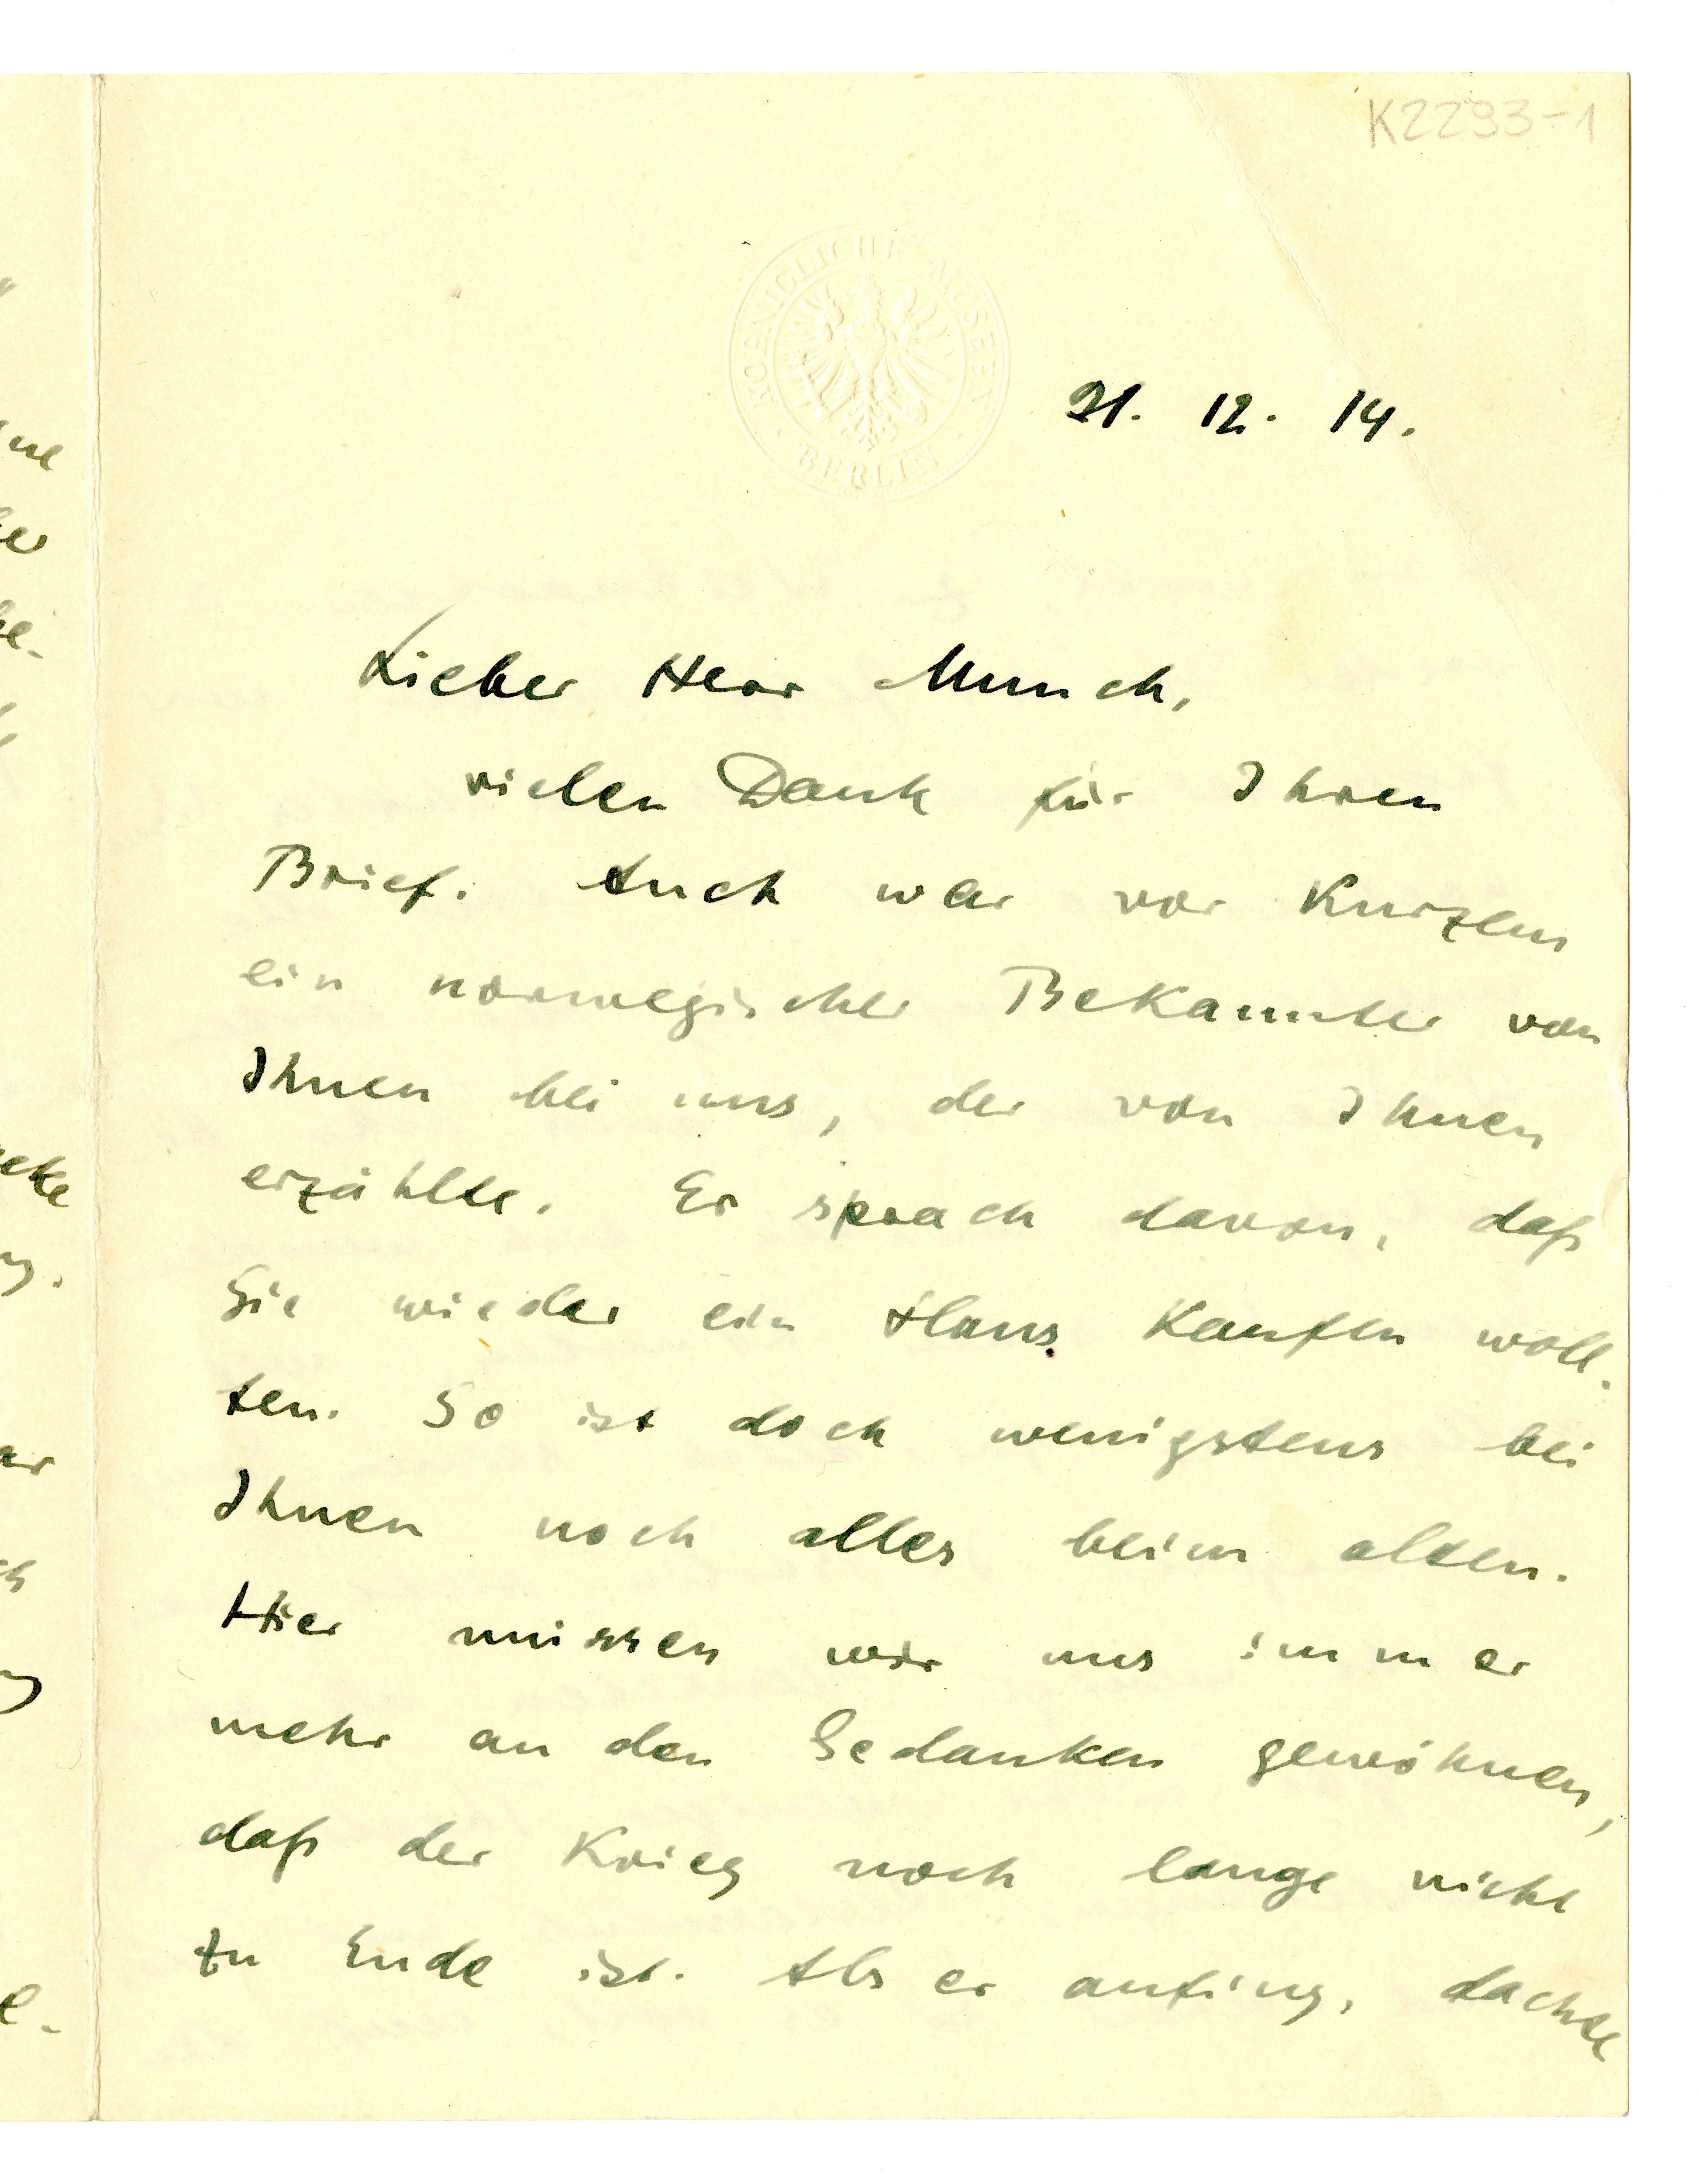 K2293-1
KOENIGLICHE MUSEEN
BERLIN
21. 12. 14.
Lieber Herr Munch,
vielen Dank für Ihren
Brief. Auch war vor Kurzem
ein norwegischer Bekannter von
Ihnen bei uns, der von Ihnen
erzählte. Er sprach davon, daß
Sie wieder ein Haus kaufen woll-
ten. So ist doch wenigstens bei
Ihnen noch alles beim alten.
Hier müssen wir uns immer
mehr an den Gedanken gewöhnen,
daß der Krieg noch lange nicht
zu Ende ist. Als er anfing, dachte